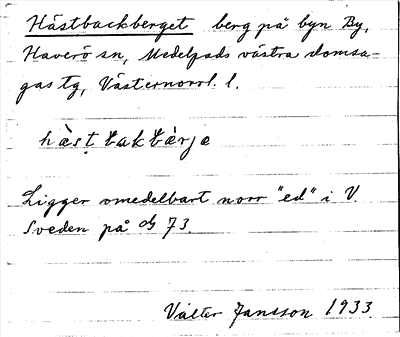 Hästbackberget berg på byn By,
Haverö sn, Medelpads västra domsa-
gas tg, Västernorrl. l.
hàsṭbakbàrje
Ligger omedelbart norr "ed" i V.
Sveden på 73.
Valter Jansson 1933